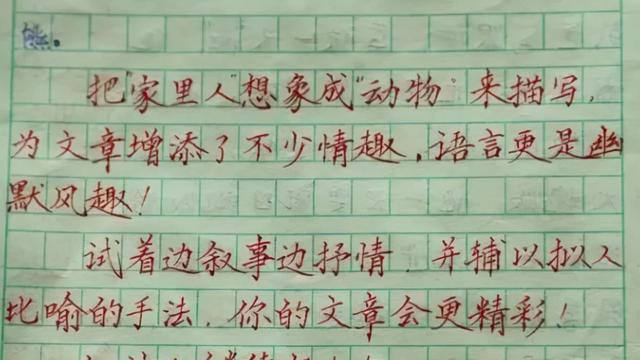 把"家里人"想象成"动物"来描写,
为文章增添了不少情趣,语言更是幽
默风趣!
试着边叙事边抒情,并辅以拟人
比喻的手法,你的文章会更精彩!